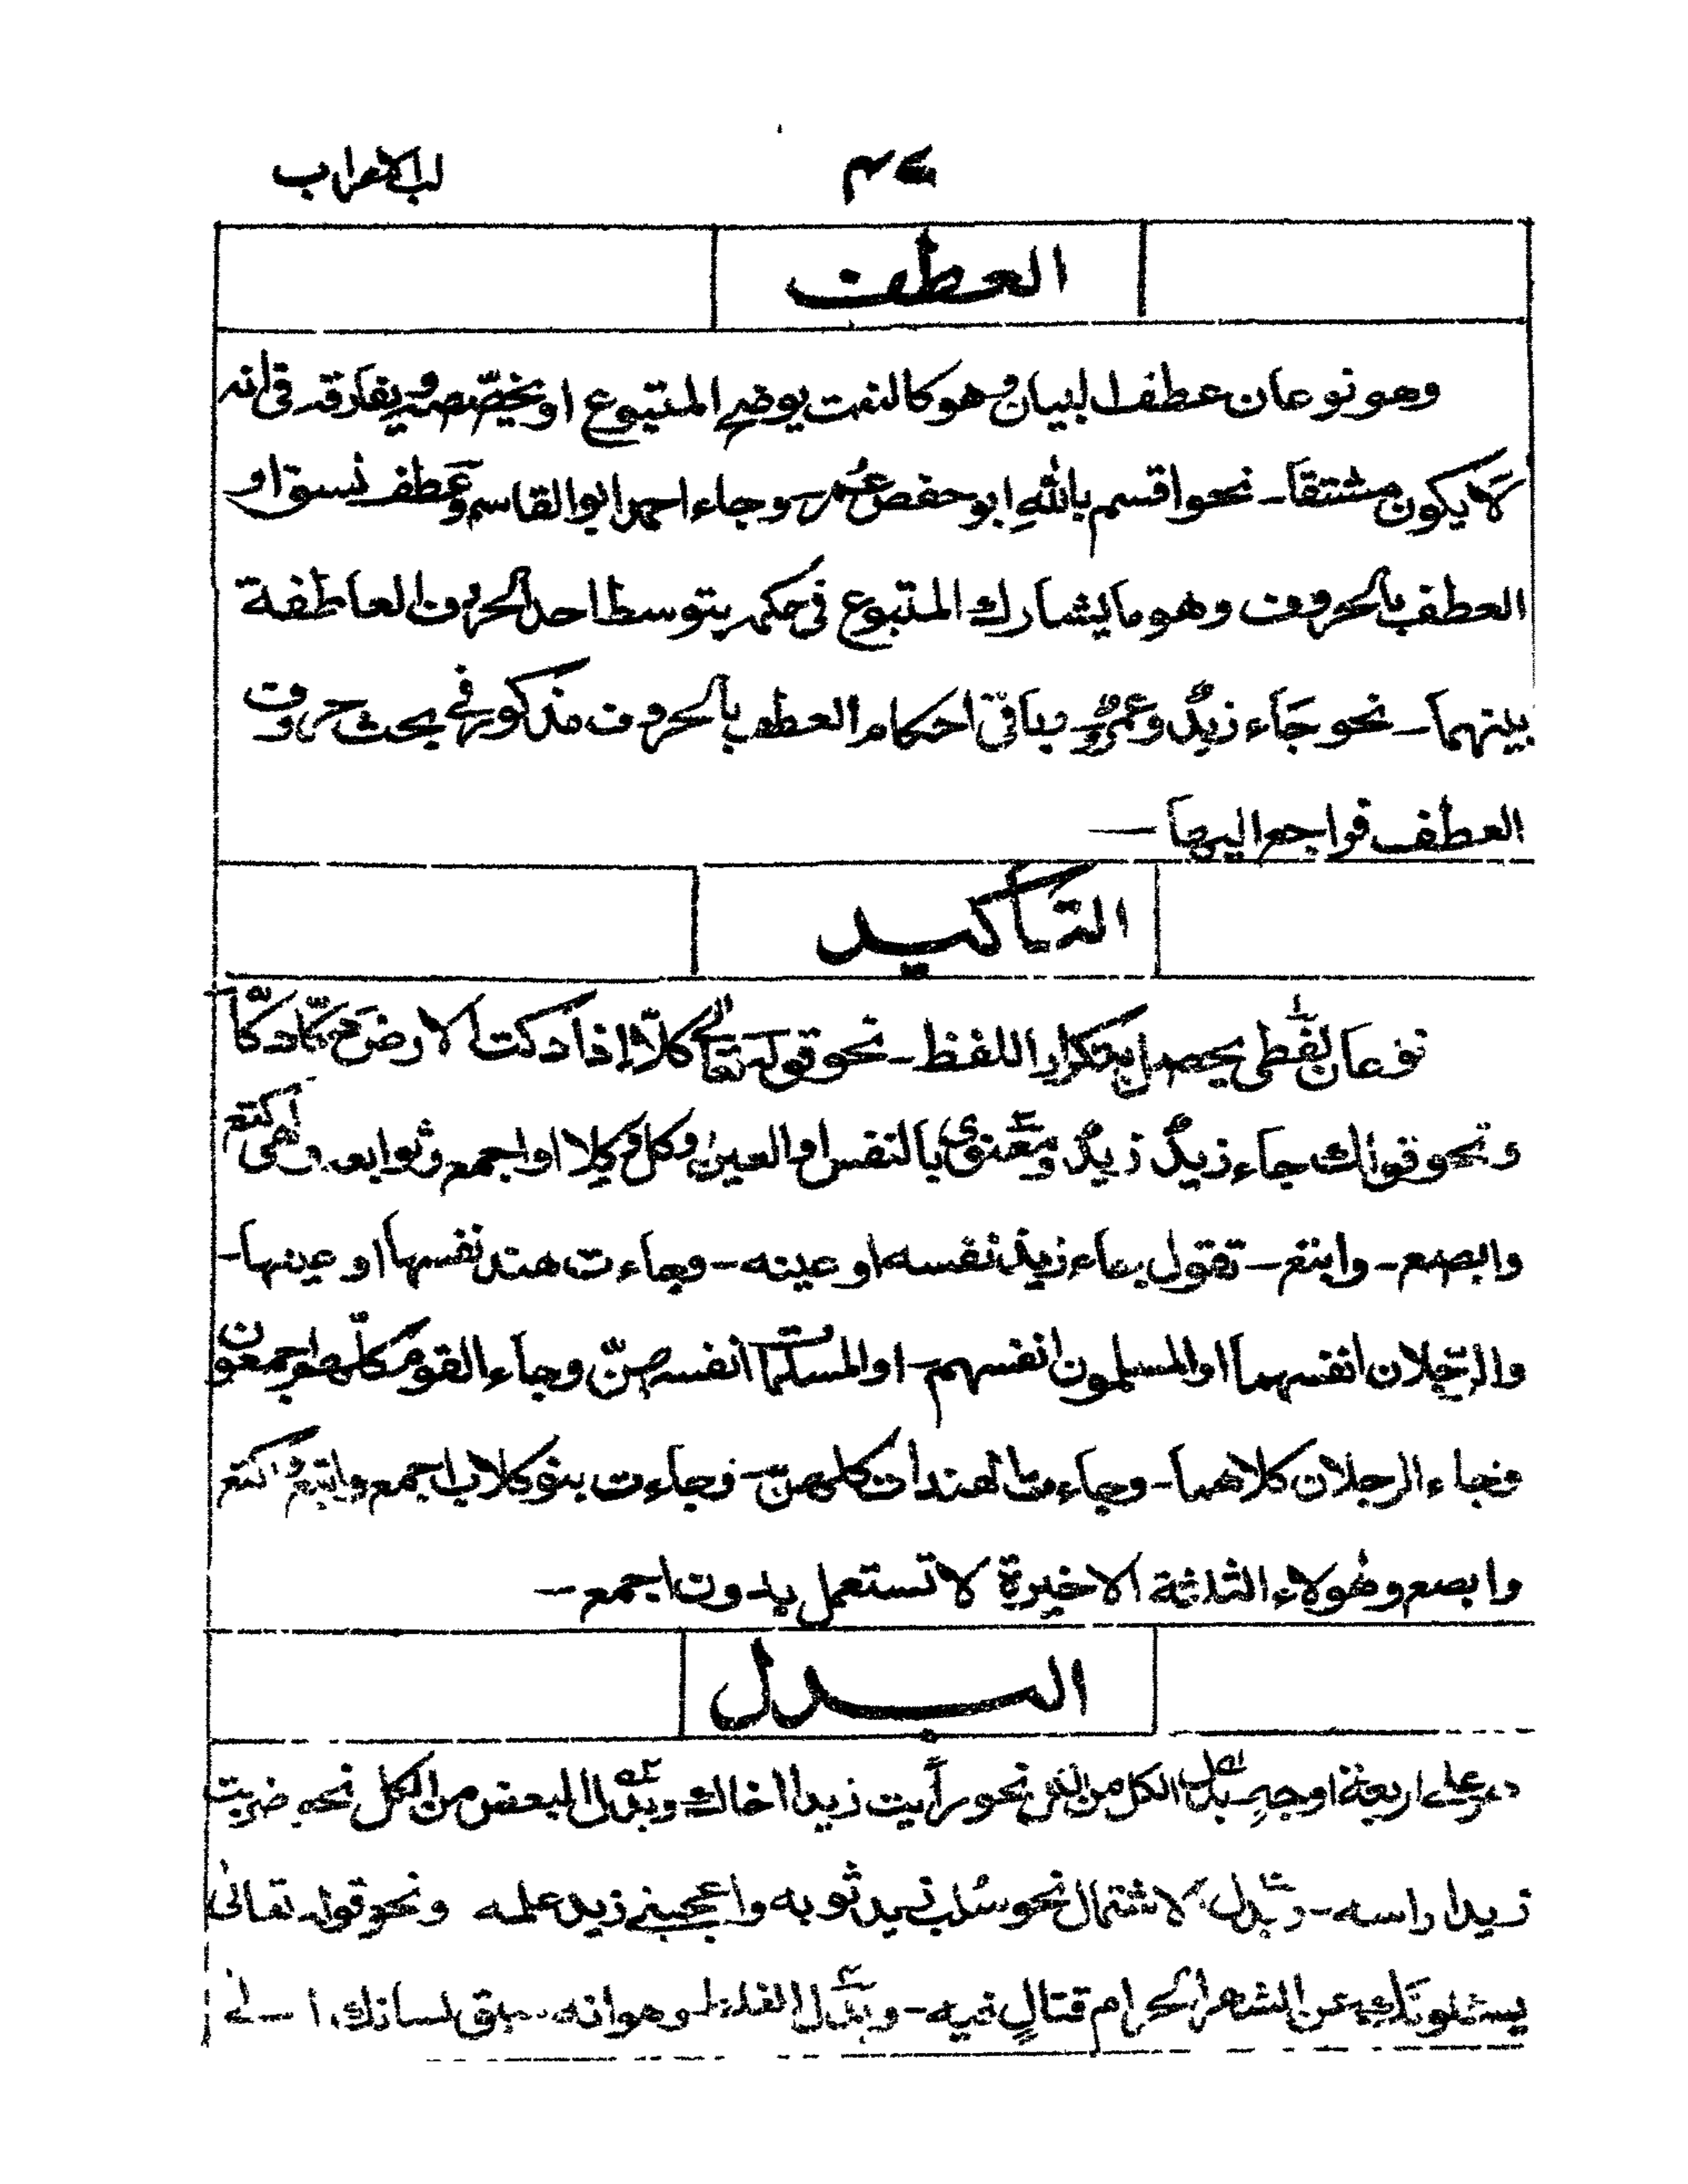 لب الاعراب
العطف
وهو نوعان عطف البيان وهو كالنعت يوضح المتبوع او يخصّصه ويفارقه في انه
لا يكون مشتقا - نحو اقسم بالله ابو حفص عُمر - وجاء احمد ابو القاسم وعطف نسق او
العطف بالحروف وهو ما يشارك المتبوع في حكمه يتوسط احد الحروف العاطفة
بينهما - نحو جَاء زيدٌ وعمرٌو - وباقي احكام العطف بالحروف مذكور في بحث حروف
العطف فراجع اليها —
التاكيد
نوعان لفظي يحصل بتكرار اللفظ - نحو قوله تعالى كلّا اذا دكت الارض دكّا دكّا
ونحو قولك جاء زيدٌ زيدٌ ومعنوي بالنفس او العين وكل وكلا او اجمع وتوابعه وهي اكتع
وابصع - وابتع - تقول جاء زيد نفسه او عينه - وجاءت هند نفسها او عينها -
والرجلان انفسهما او المسلمون انفسهم - او المسلمات انفسهنّ وجاء القوم كلّهم اجمعون
وجاء الرجلان كلاهما - وجاءت الهندات كلهنّ - وجاءت بنو كلاب اجمع وابتع واكتع
وابصع وهٰولاء الثلاثة الاخيرة لا تستعمل بدون اجمع —
البدل
وهو على اربعة اوجهٍ بدل الكل من الكل نحو رأيت زيدا اخاك وبدل البعض من الكل نحو ضربت
زيدا راسه - وبدل الاشتمال نحو سُلب زيد ثوبه واعجبني زيد علمه ونحو قوله تعالى
يسئلونك عن الشهر الحرام قتالٍ فيه - وبدل الغلط وهو انه سبق لسانك